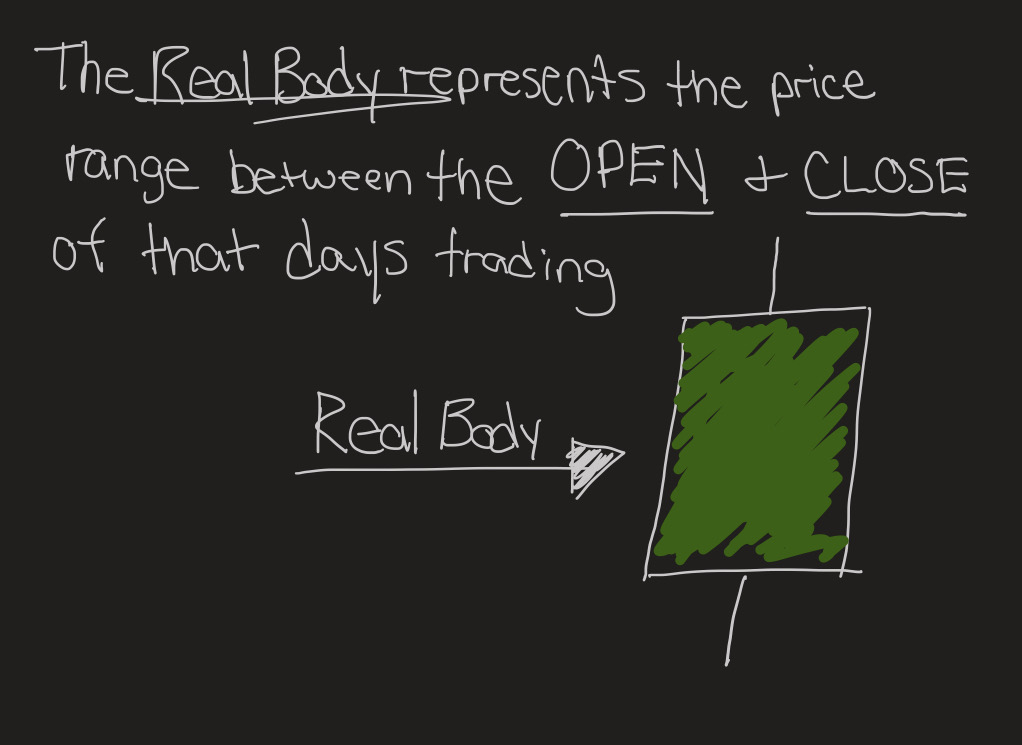 The Real Body represents the price
range between the OPEN & CLOSE
of that days trading
Real Body